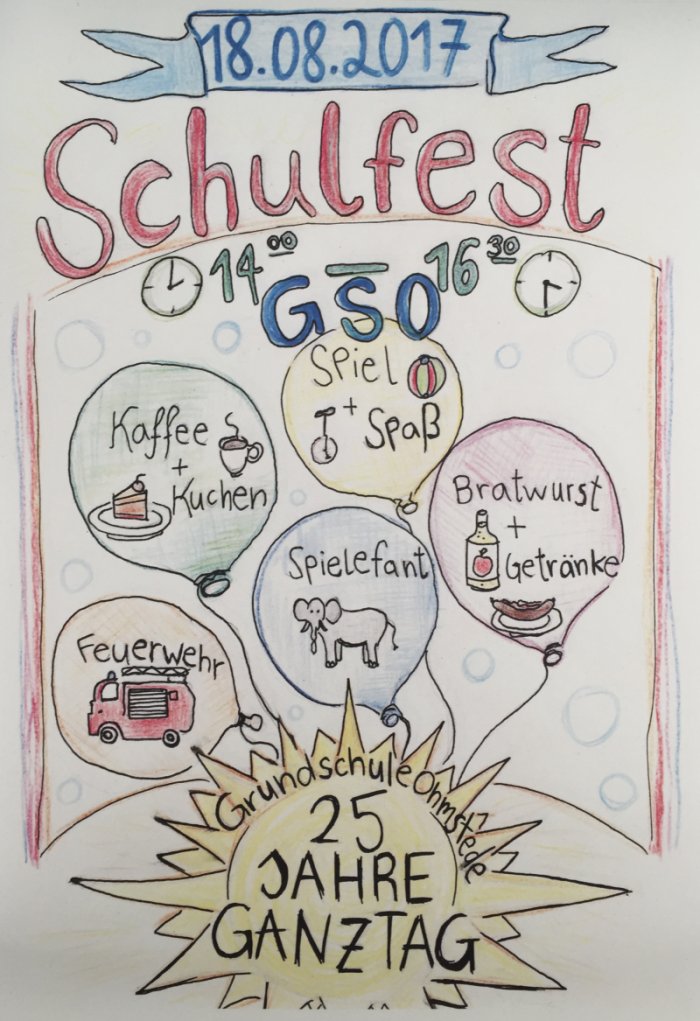 18.08.2017
Schulfest
14 00 - 16 30
GSO
Spiel
+ Spaß
Kaffee
+
Kuchen
Bratwurst
+
Getränke
Spielefant
Feuerwehr
Grundschule Ohmstede
25
JAHRE
GANZTAG